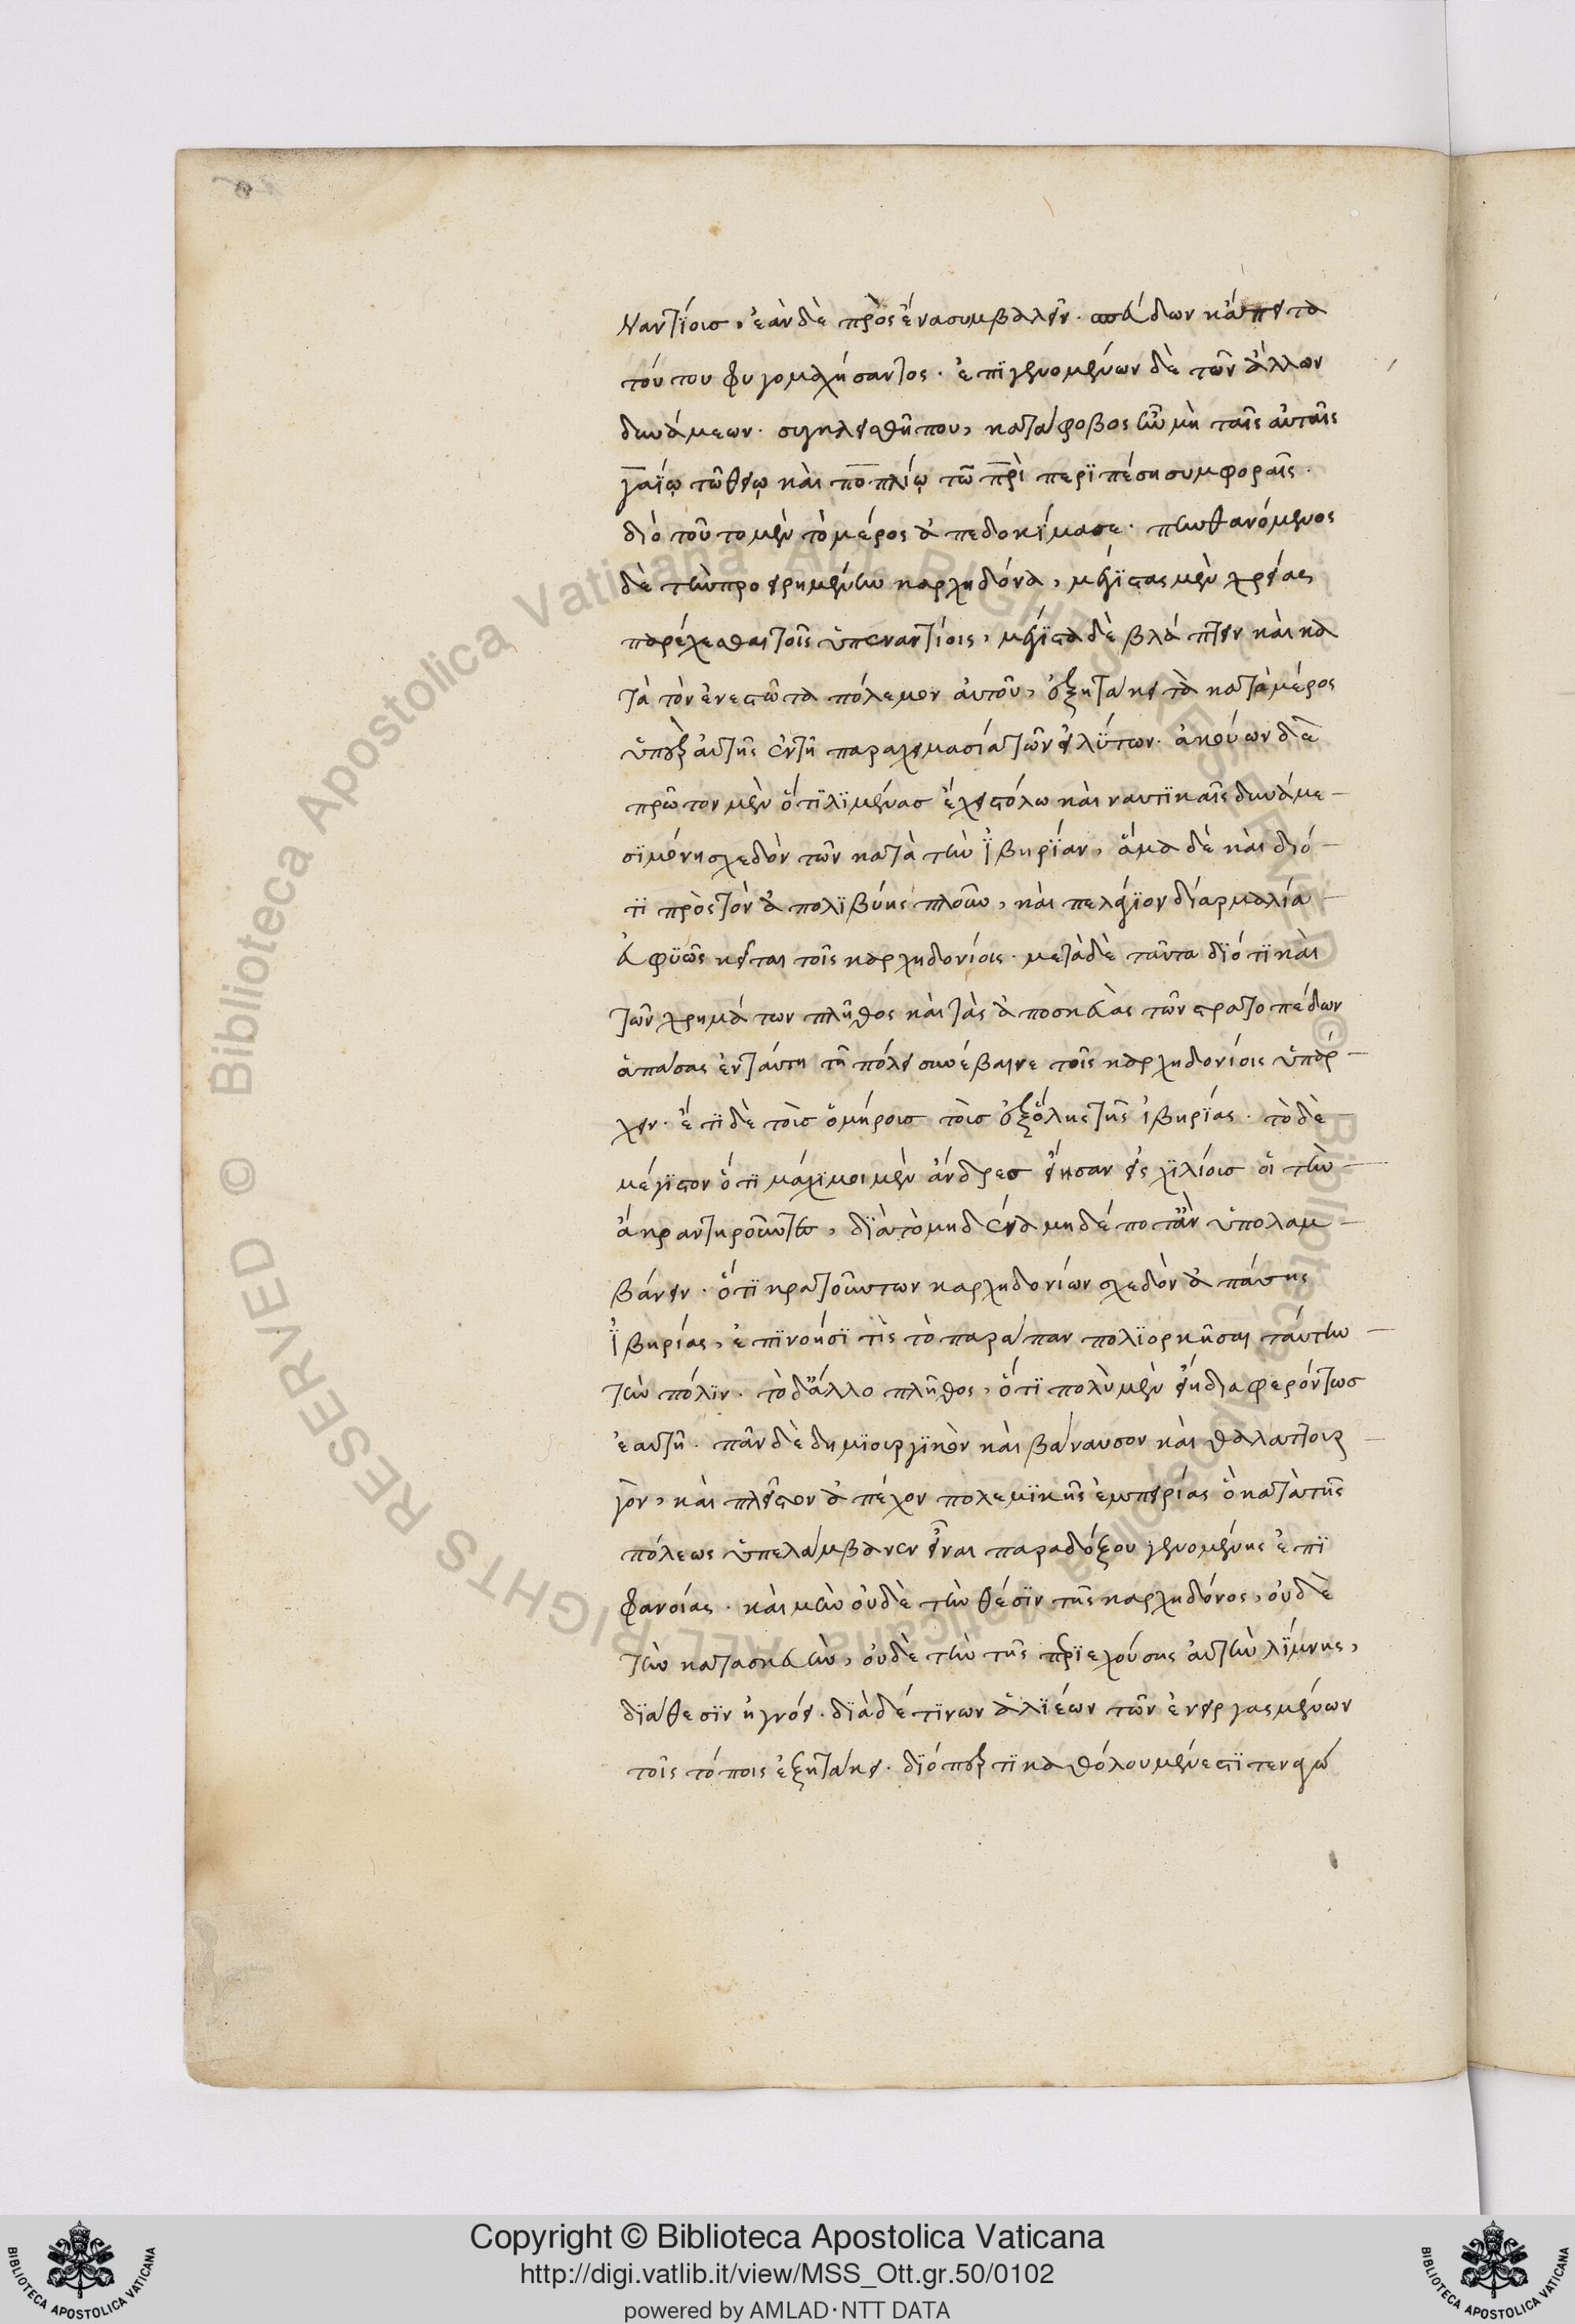 ναντίοισ, ἐὰν δὲ πρὸς ἕνα συμβαλεῖν. σπεύδων κἄπειτα
τούτου φυγομαχήσαντος. ἐπϊγενομένων δὲ τῶν ἄλλων
δυνάμεων. συγκλεισθῆ που, κατάφοβος ἦν μὴ ταῖς αὐταῖς
γαΐῳ τῶ θείῳ καὶ ποπλίῳ τῶ πρὶ περϊπέση συμφοραῖς.
διὸ τοῦτο μὲν τὸ μέρος ἀπεδοκίμασε. πυνθανόμενος
δὲ τὴν προειρημένην καρχηδόνα, μεγίστας μὲν χρείας
παρέχεσθαι τοῖς ὑπεναντίοις, μέγιστα δὲ βλάπτειν καὶ κα
τὰ τὸν ἐνεστῶτα πόλεμον αὐτοῦ, ἐξητάκει τὰ κατὰ μέρος
ὑπὲρ αὐτῆς ἐν τῆ παραχειμασία τῶν εἰδότων. ἀκούων δὲ
πρῶτον μὲν ὅτϊ λϊμένασ ἔχει στόλω καὶ ναυτϊκαῖς δυνάμε-
σϊ μόνη σχεδὸν τῶν κατὰ τὴν ἰβηρΐαν, ἅμα δὲ καὶ διό-
τϊ πρὸς τὸν ἀπολϊβύης πλοῦν, καὶ πελάγϊον δίαρμα λία-
εὐφϋῶς κεῖται τοῖς καρχηδονίοις. μετὰ δὲ ταῦτα δϊότϊ καὶ
τῶν χρημάτων πλῆθος καὶ τὰς ἀποσκευὰς τῶν στρατοπέδων
ἁπάσας ἐν ταύτη τῆ πόλει συνέβαινε τοῖς καρχηδονίοις ὑπάρ-
χειν. ἔτϊ δὲ τοὶσ ὁμήροισ τοὶσ ἐξ ὅλης τῆς ἰβηρΐας. τὸ δὲ
μέγϊστον ὅτϊ μάχϊμοι μὲν ἄνδρεσ εἴησαν εἰς χϊλίοισ οἱ τὴν-
ἄκραν τηροῦντες, δϊὰ τὸ μηδένα μηδέποτ' ἂν ὑπολαμ-
βάνειν. ὅτϊ κρατούντων καρχηδονίων σχεδὸν ἁπάσης
ἰβηρίας, ἐπϊνοήσϊ τὶς τὸ παράπαν πολϊορκῆσαι ταύτην-
τὴν πόλϊν. τὸ δ' ἄλλο πλῆθος, ὅτϊ πολὺ μὲν εἴη διαφερόντωσ
ἐαυτῆ. πᾶν δὲ δημϊουργϊκὸν καὶ βάναυσον καὶ θαλαττουρ-
γὸν, καὶ πλεῖστον ἀπέχον πολεμϊκῆς ἐμπειρίας ὃ κατὰ τῆς
πόλεως ὑπελάμβανεν εἶναι παραδόξου γενομένης ἐπϊ
φανοίας. καὶ μὴν οὐδὲ τὴν θέσϊν τῆς καρχηδόνος, οὐδὲ
τὴν κατασκευὴν, οὐδὲ τὴν τῆς περϊεχούσης αὐτὴν λίμνης,
δϊάθεσϊν ἠγνόει. δϊὰ δέ τϊνων ἁλϊέων τῶν ἐνειργασμένων
τοῖς τόποις ἐξητάκει. δϊόπερ τϊ καθόλου μὲν ἐστϊ τεναγώ